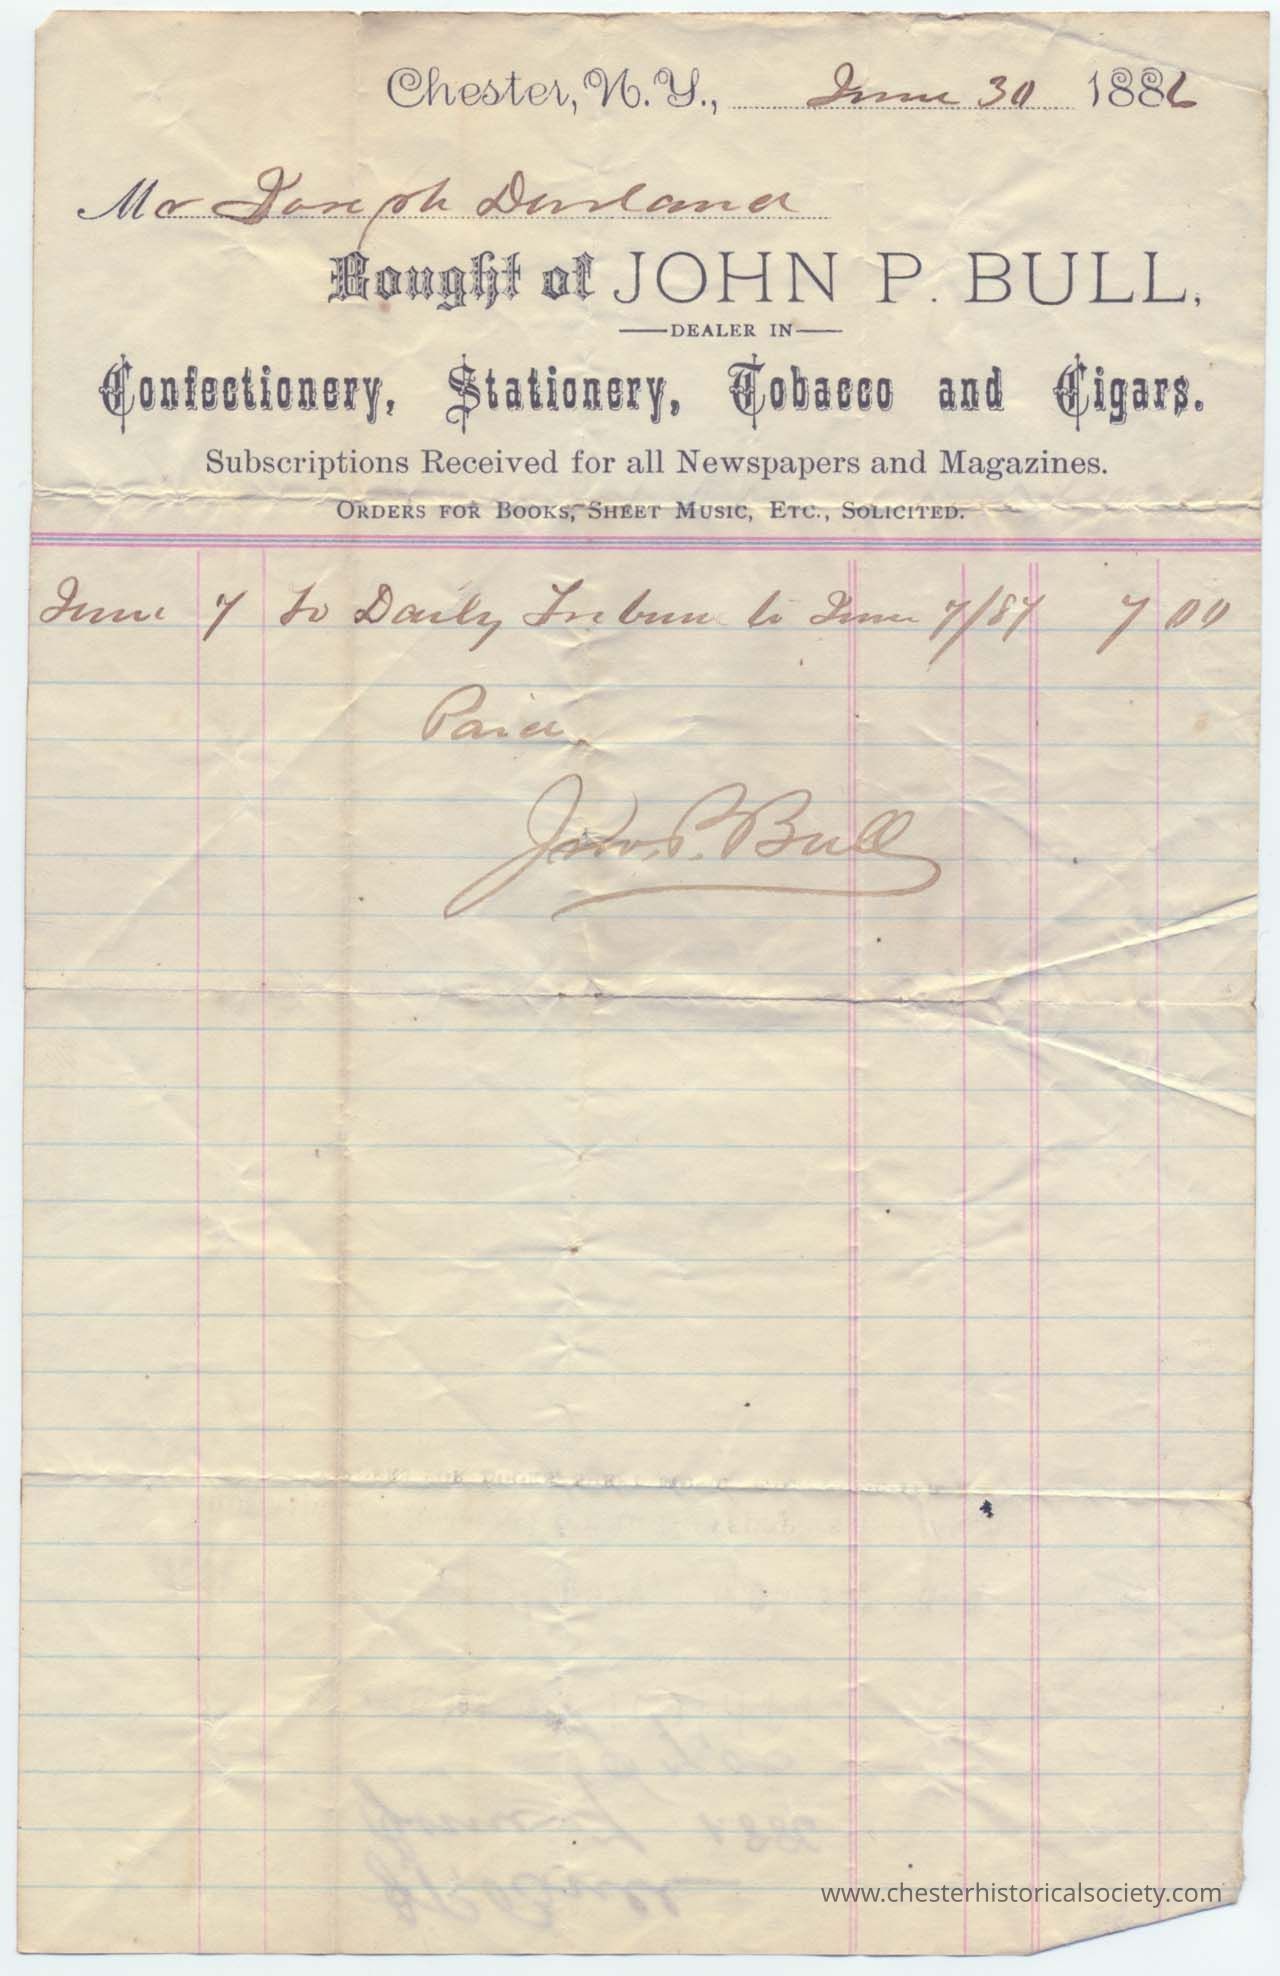 Chester, N. Y., June 30 1886
Mr Joseph Durland
Bought of JOHN P. BULL,
DEALER IN
Confectionery, Stationery, Tobacco and Cigars.
Subscriptions Received for all Newspapers and Magazines.
ORDERS FOR BOOKS, SHEET MUSIC, ETC., SOLICITED.
June 7 To Daily Tribune to June 7/87 7 00
Paid
Jno. P. Bull
www.chesterhistoricalsociety.com